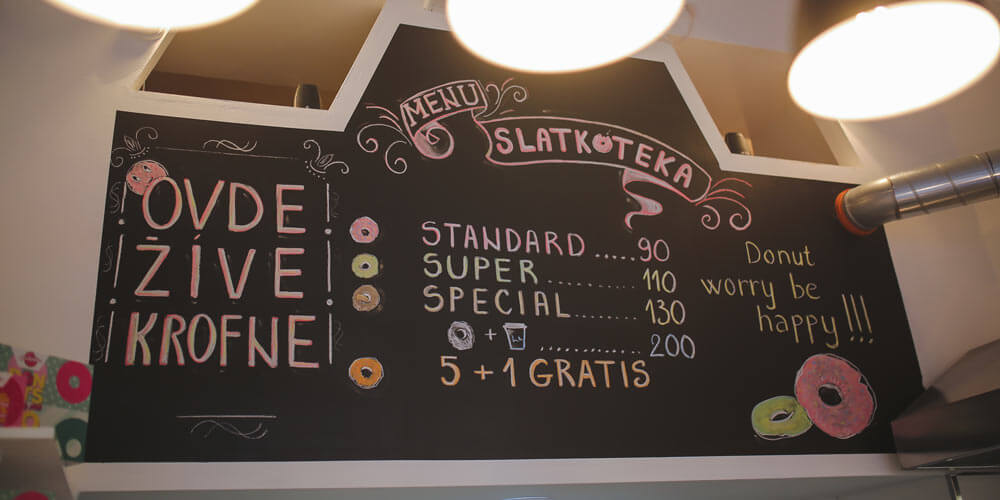 MENU
SLATKOTEKA
OVDE
ŽIVE
KROFNE
STANDARD ..... 90
SUPER .......... 110
SPECIAL ........ 130
+ ............. 200
5 + 1 GRATIS
Donut
worry be
happy!!!